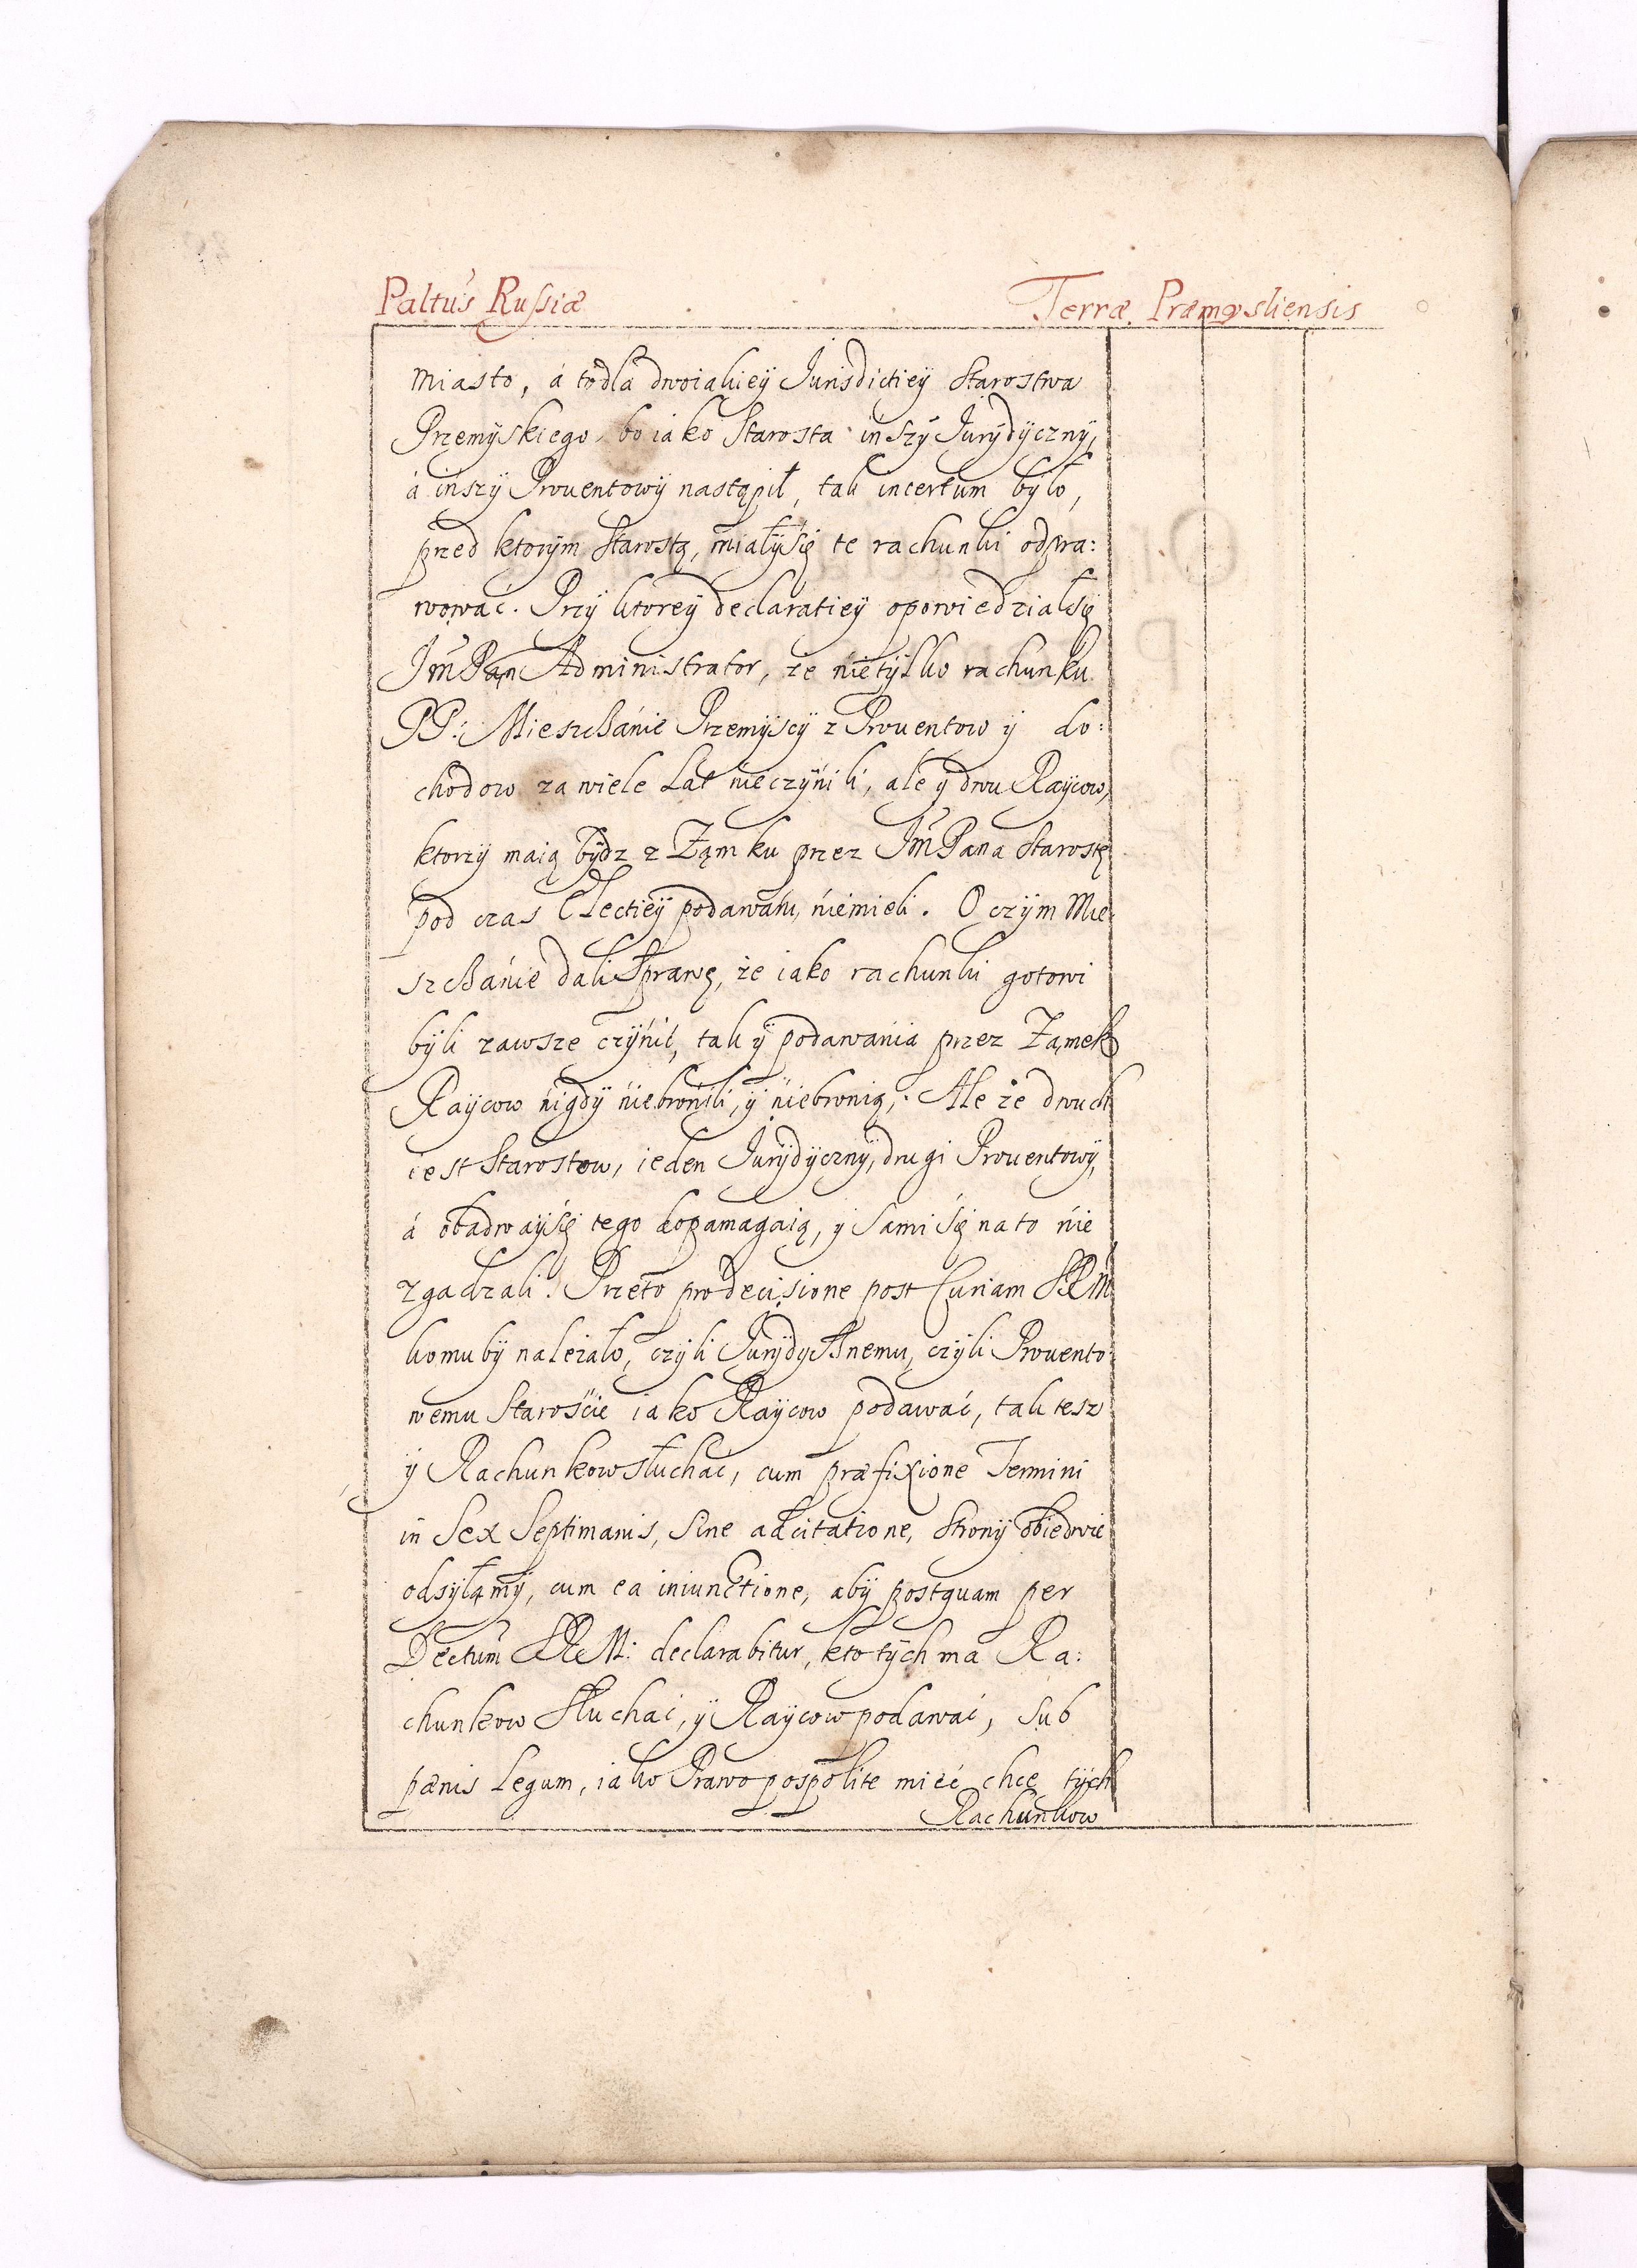 Paltus Russiæ
Terræ Præmysliensis
miasto, á tọdla dwoiakieÿ Jurisdictieÿ Starostwa
Przemÿskiego, bo iako Starosta inszÿ Jurÿdÿcznÿ,
á inszÿ Prouentowÿ nastąpił, tak incertum bÿło,
przed ktorÿm Starostą, miałÿ się te rachunki odpra:
wować. Przÿ ktoreÿ declaratieÿ opowiedział się
Jm̃ Pan Administrator, że nie tÿlko rachunku
PP: Mieszczánie Przemÿscÿ z Prouentow ÿ do:
chodow za wiele Lat nieczÿnili, ale ÿ dwu Raÿcow,
ktorzÿ maią bÿdz z Zamku przez Jm̃ Pana Starostę
pod czas Electieÿ podawani, niemieli. O czÿm Mie:
szczánie dali sprawę, że iako rachunki gotowi
bÿli zawsze czÿnić, tak ÿ podawania przez Zamek
Raÿcow nigdÿ niebronili, ÿ niebronią; Ale że dwuch
iest Starostow, ieden Jurÿdÿcznÿ, drugi Prouentowÿ,
á obadwaÿ się tego dopamagaią, ÿ sami się na to nie
zgadzali. Przeto pro decisione post Curiam SRM
komu bÿ należało, czÿli Jurÿdÿcznemu, czÿli Prouento:
wemu Starośćie iako Raÿcow podawać, tak tesz
ÿ Rachunkow słuchać, cum præfixione Termini
in Sex Septimanis, sine adcitatione, Stronÿ obiedwie
odsÿłamÿ, cum ea iniunctione, abÿ postquam per
Dectum SRM: declarabitur, kto tÿch ma Ra:
chunkow słuchać, ÿ Raÿcow podawać, sub
pænis Legum, iako Prawo pospolite mieć chce tÿch
Rachunkow